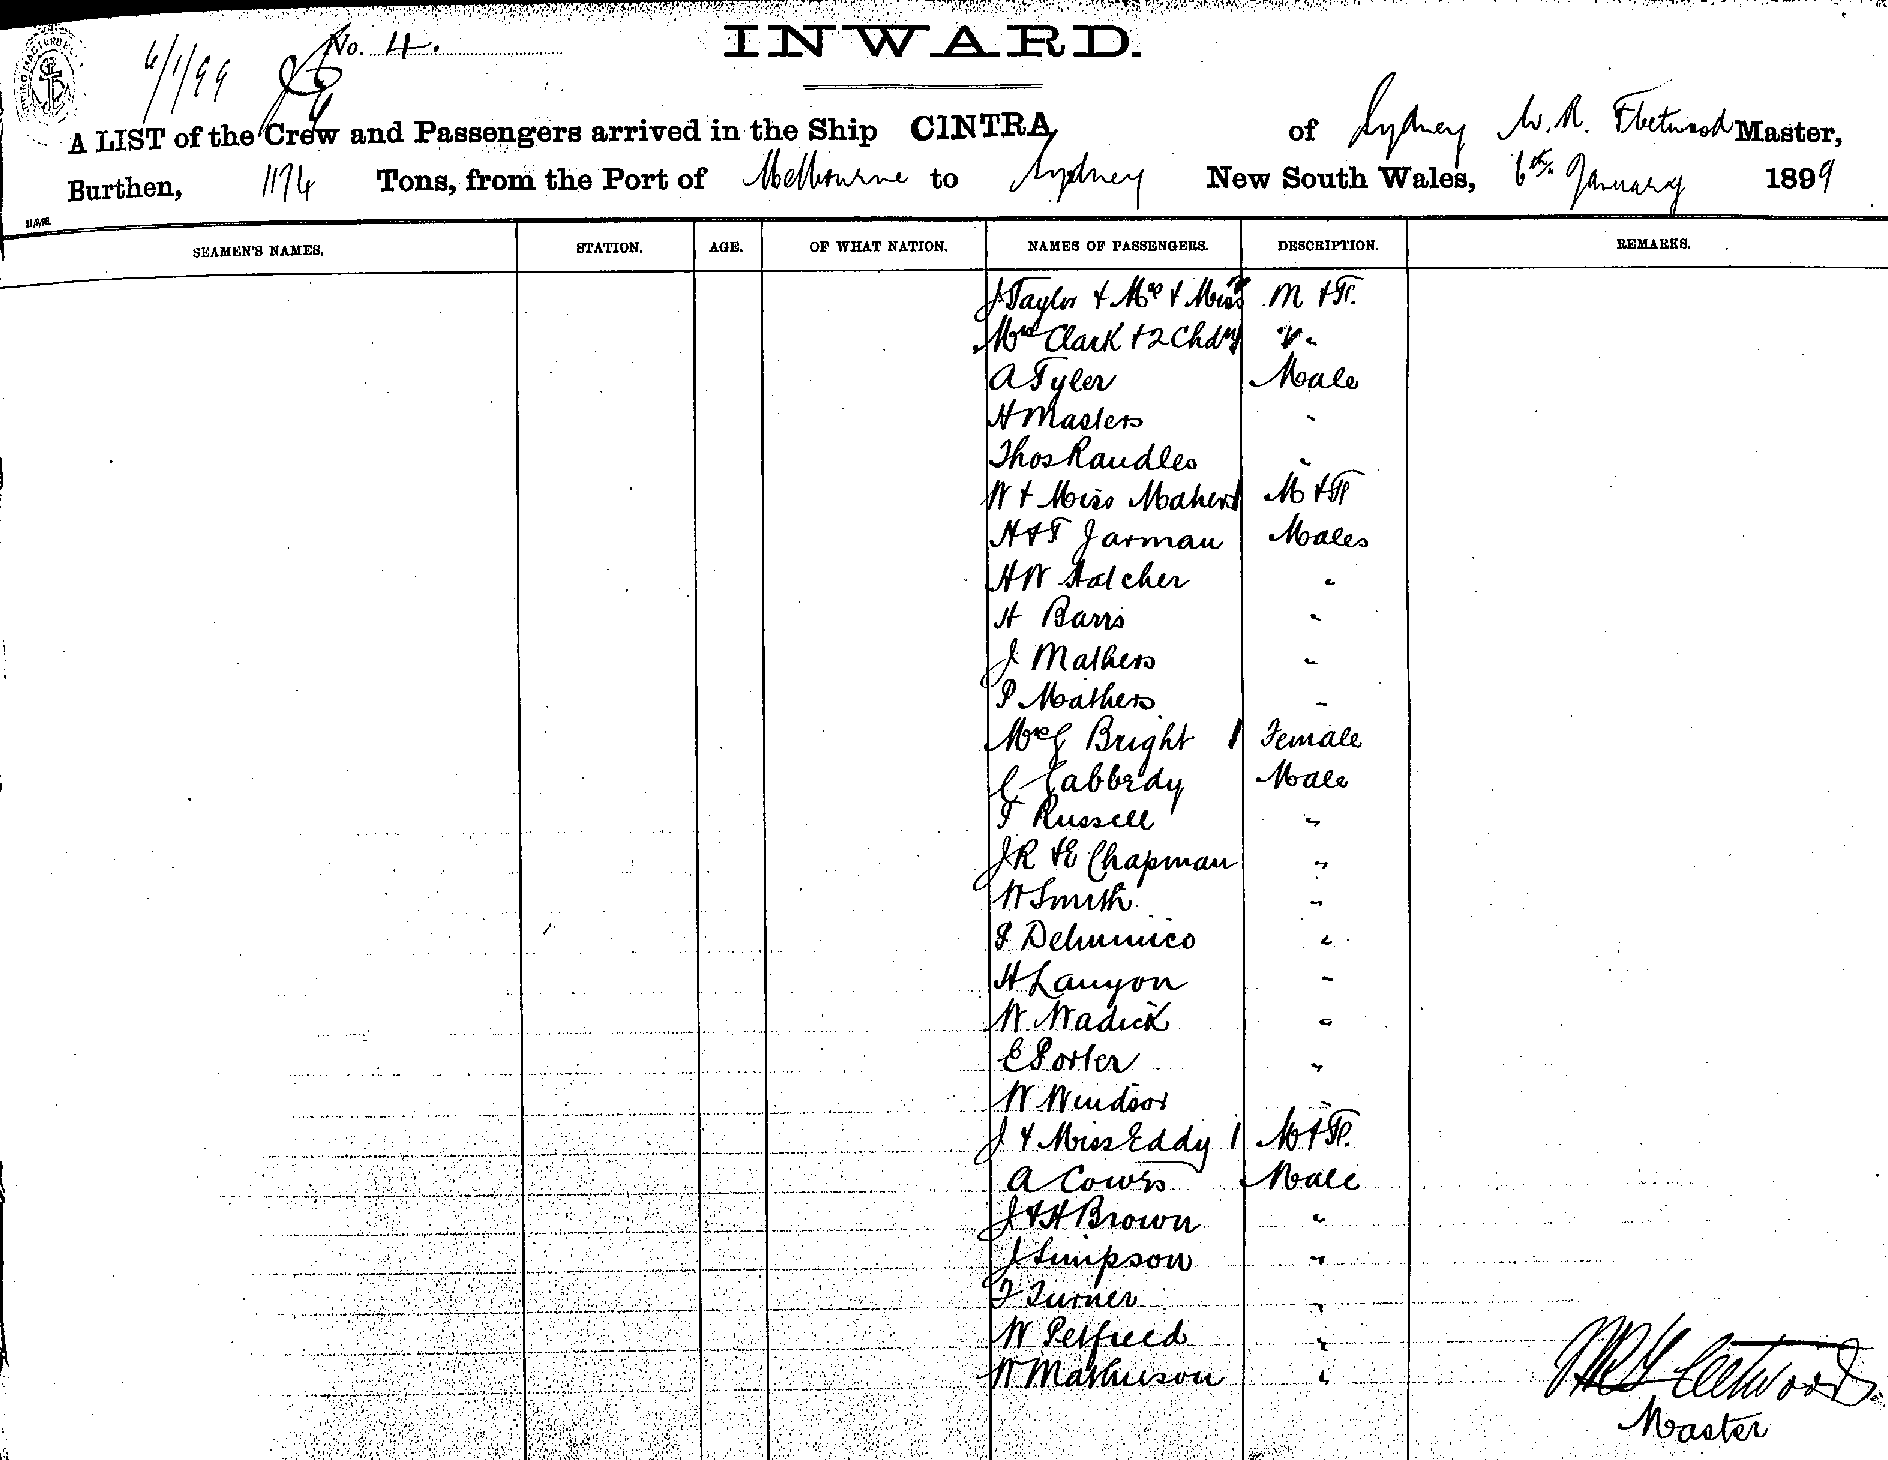 6/1/99 No. 4.
INWARD.
A LIST of the Crew and Passengers arrived in the Ship CINTRA of Sydney W. R. Fleetwood Master,
Burthen, 1174 Tons, from the Port of Melbourne to Sydney New South Wales, 6th January 1899
SEAMEN'S NAMES. STATION. AGE. OF WHAT NATION. NAMES OF PASSENGERS. DESCRIPTION. REMARKS.
J Taylor + Mrs + Miss M + F.
Mrs Clark + 2 Chdn "
A Tyler Male
H Masters "
Thos Randles "
W + Miss Mahers M + F
H + F Jarman Males
H W Hatcher "
H Barrs "
J Mathers "
P Mathers "
Mrs G Bright 1 Female
C Gabbedy Male
F Russell "
J R + E Chapman "
W Smith "
H Lanyon "
W Wadick "
E Porter "
W Windsor "
J + Miss Eddy 1 M + F.
A Male
J + H Brown "
J Simpson "
F Turner "
W "
W Mathieson "
W R Fleetwood
Master